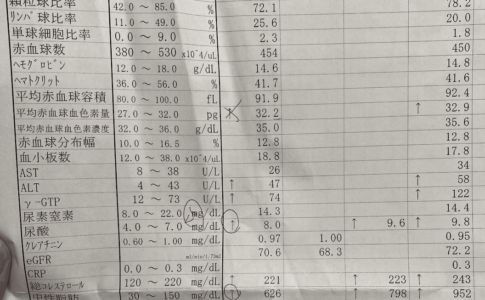 顆粒球比率 42.0 ～ 85.0 % 72.1 78.2
リンパ球比率 11.0 ～ 49.0 % 25.6 20.0
単球細胞比率 0.0 ～ 9.0 % 2.3 1.8
赤血球数 380 ～ 530 x10^4/uL 454 450
ヘモグロビン 12.0 ～ 18.0 g/dL 14.6 14.8
ヘマトクリット 36.0 ～ 56.0 % 41.7 41.6
平均赤血球容積 80.0 ～ 100.0 fL 91.9 92.4
平均赤血球血色素量 27.0 ～ 32.0 pg ↑ 32.2 ↑ 32.9
平均赤血球血色素濃度 32.0 ～ 36.0 g/dL 35.0 35.6
赤血球分布幅 10.0 ～ 16.5 % 12.8 12.8
血小板数 12.0 ～ 38.0 x10^4/uL 18.8 17.8
AST 8 ～ 38 U/L 26 34
ALT 4 ～ 43 U/L ↑ 47 ↑ 58
γ-GTP 12 ～ 73 U/L ↑ 74 ↑ 122
尿素窒素 8.0 ～ 22.0 mg/dL 14.3 14.4
尿酸 4.0 ～ 7.0 mg/dL ↑ 8.0 ↑ 9.6 ↑ 9.8
クレアチニン 0.60 ～ 1.00 mg/dL 0.97 1.00 0.95
eGFR ml/min/1.73m2 70.6 68.3 72.2
CRP 0.0 ～ 0.3 mg/dL 0.3
総コレステロール 120 ～ 220 mg/dL ↑ 221 ↑ 223 ↑ 243
中性脂肪 30 ～ 150 mg/dL ↑ 626 ↑ 798 ↑ 952